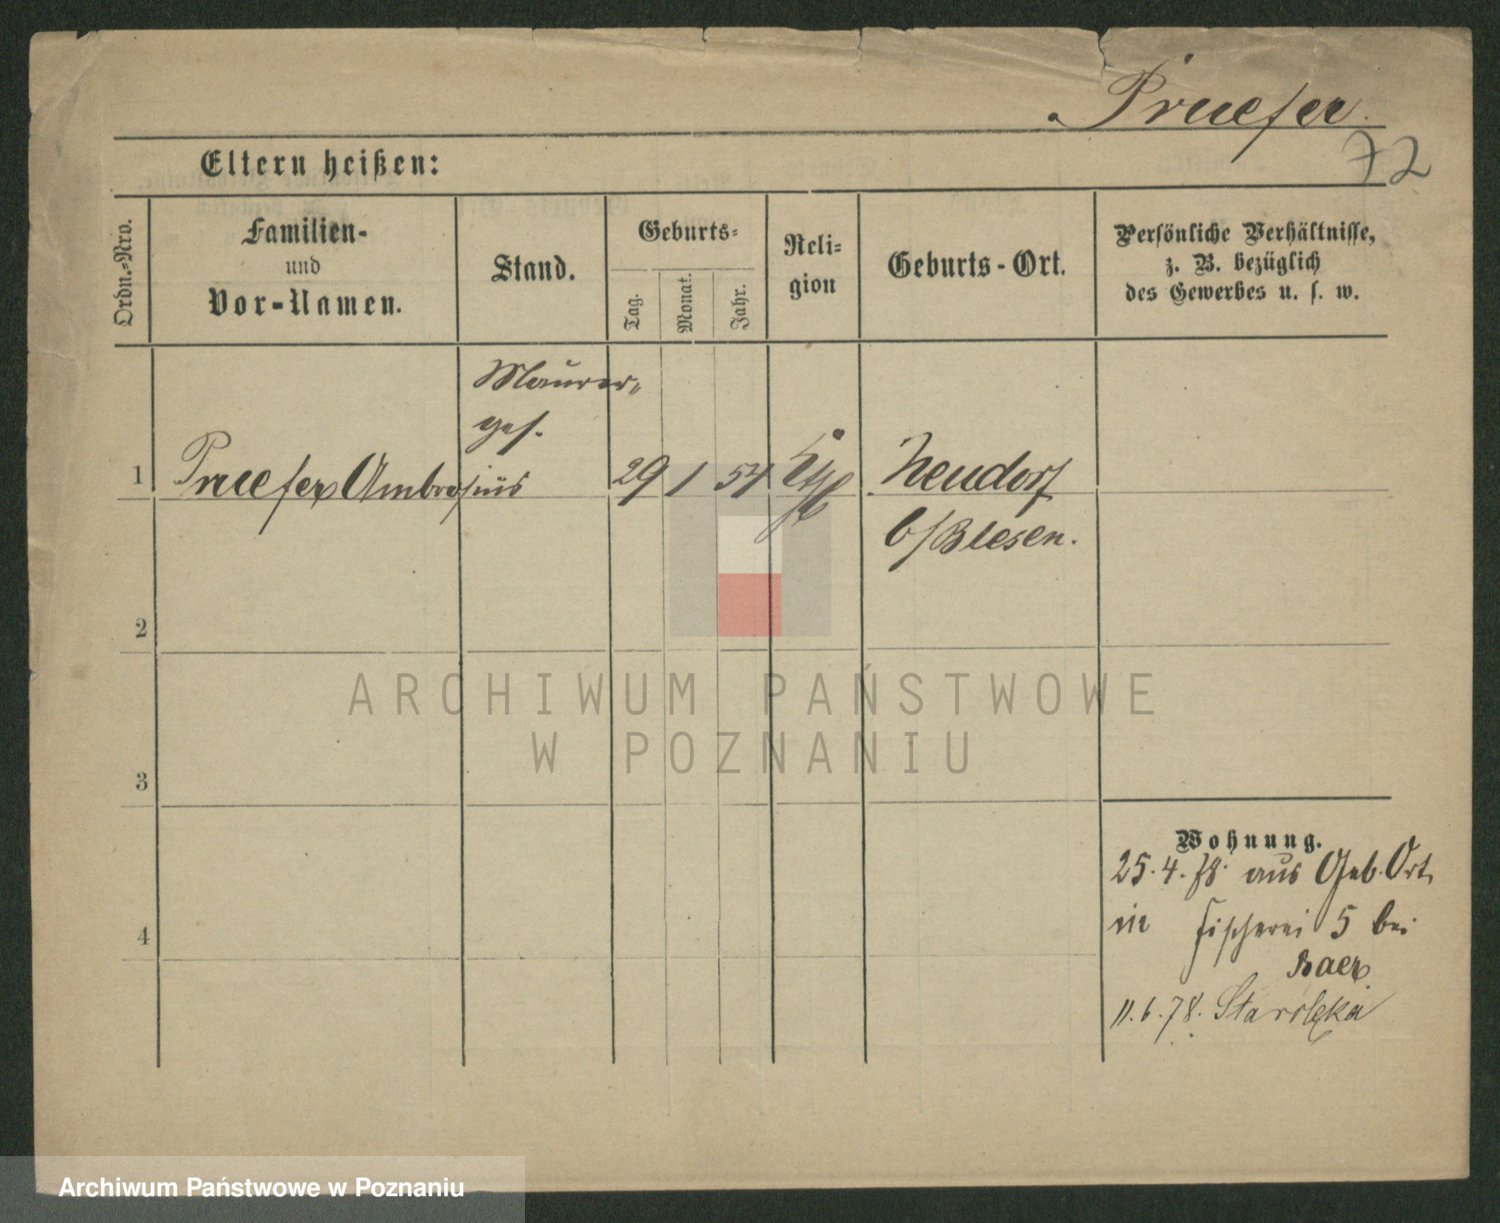 Pruefer.
72
Eltern heißen:
Ordn.-Nro.
Familien-
und
Vor-Namen.
Stand.
Geburts-
Tag.
Monat.
Jahr.
Reli-
gion
Geburts-Ort.
Persönliche Verhältnisse,
z. B. bezüglich
des Gewerbes u. s. w.
Maurer-
ges.
1 Pruefer Ambrosius 29 1 54 kth Neudorf
b/Blesen.
2
3
4
Wohnung.
25.4.78. aus Geb. Ort
in Fischerei 5 bei
Baer
11.6.78. Starolęka
ARCHIWUM PAŃSTWOWE
W POZNANIU
Archiwum Państwowe w Poznaniu